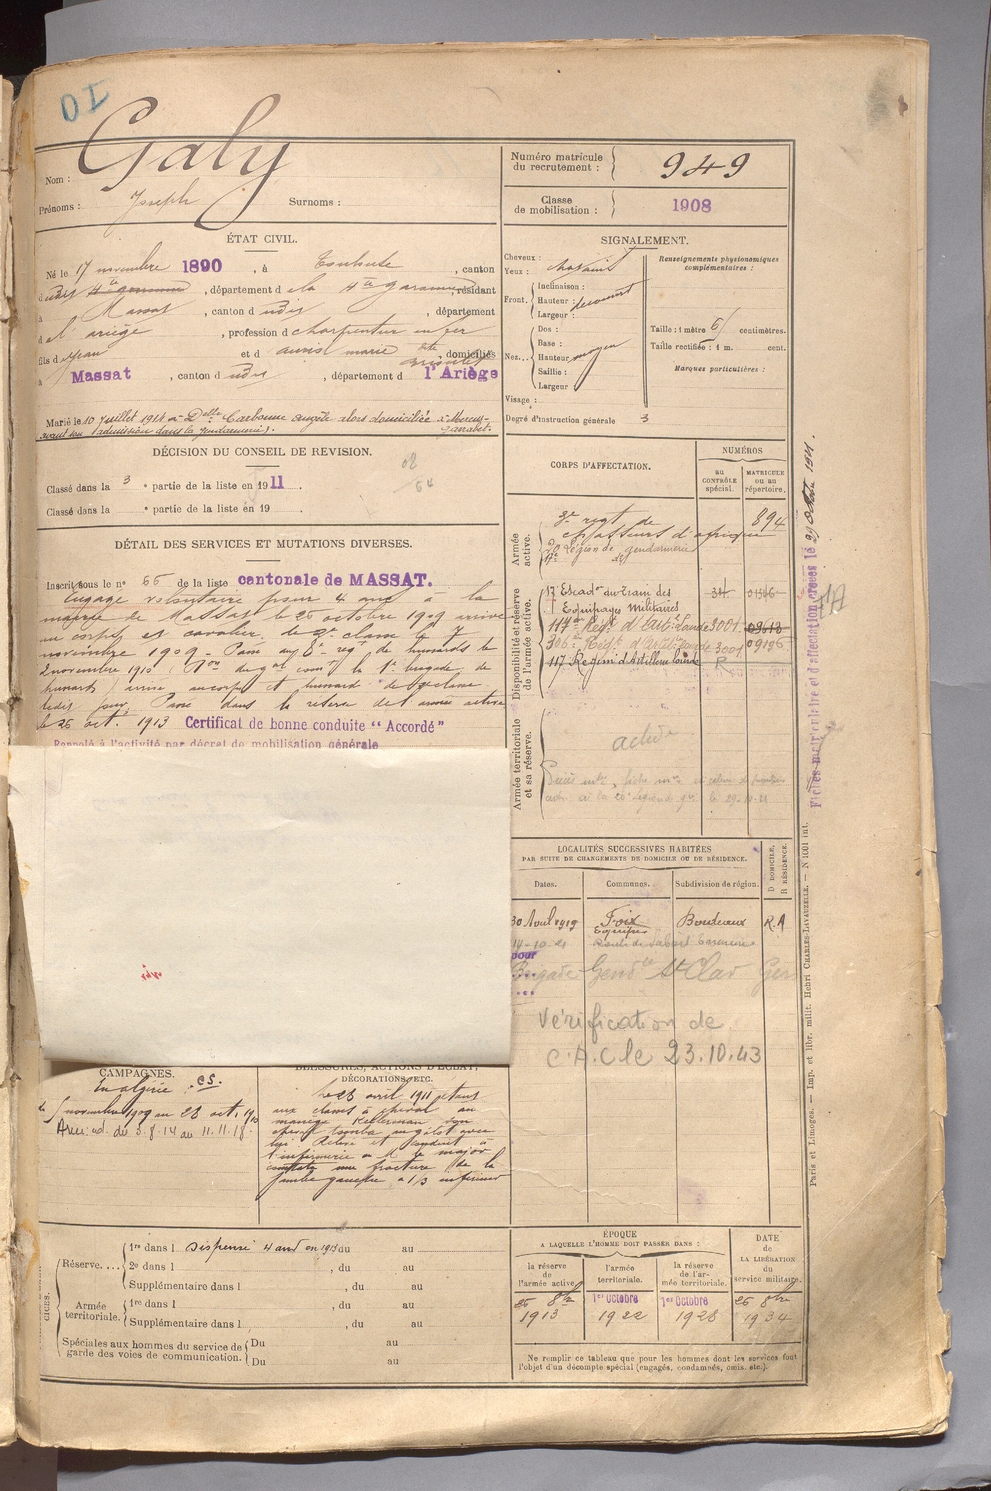 10
Nom : Galy
Prénoms : Joseph Surnoms :
Numéro matricule du recrutement : 949
Classe de mobilisation : 1908
ÉTAT CIVIL.
Né le 17 novembre 1890, à Toulouse, canton
d udit, département d e la Hte Garonne, résidant
à Massat, canton d udit, département
d e l'ariège, profession d charpentier en fer
fils d e Jean et d auris marie domiciliés
à Massat, canton d udit, département d l'Ariège
Marié le 10 Juillet 1914 à Delle Carbonne alors domiciliée à Mercus-
Garrabet.
avant son admission dans la gendarmerie).
SIGNALEMENT.
Cheveux :
Yeux : chatains
Front. Inclinaison :
Hauteur : découvert
Largeur :
Nez... Dos :
Base :
Hauteur moyen
Saillie :
Largeur
Visage :
Renseignements physionomiques complémentaires :
Taille : 1 mètre 61 centimètres.
Taille rectifiée : 1 m. cent.
Marques particulières :
Degré d'instruction générale 3
DÉCISION DU CONSEIL DE REVISION.
Classé dans la 3 e partie de la liste en 1911.
Classé dans la e partie de la liste en 19 .
08
64
DÉTAIL DES SERVICES ET MUTATIONS DIVERSES.
Inscrit sous le n° 66 de la liste cantonale de MASSAT.
Engagé volontaire pour 4 ans à la
mairie de Massat le 26 octobre 1909 arrivé
au corps et cavalier de 2e classe le 7
novembre 1909 - Passé au 8e régt de hussards le
2 novembre 1910 (Don du gal comt la 1e brigade de
hussards) arrivé au corps et hussard de 2e classe
ledit jour. Passé dans la réserve de l'armée active
le 26 oct. 1913 Certificat de bonne conduite “Accordé”
Rappelé à l'activité par décret de mobilisation générale
CORPS D'AFFECTATION.
NUMÉROS
au CONTRÔLE spécial.
MATRICULE ou au répertoire.
Armée active.
3e regt de chasseurs d'afrique 894
20 Légion de gendarmerie
17e
Disponibilité et réserve de l'armée active.
17 Escadon du Train des Equipages Militaires 34 01546
117e Regt d'Artie Lourde 3001 09618
306e Regt d'Artie Lourde 3001 09196
117 Régim d'Artillerie Lourde R
Armée territoriale et sa réserve.
active
le 29-10-21
Fiches matriculaire et d'affectation créées le 29 Octobre 1921.
LOCALITÉS SUCCESSIVES HABITÉES
PAR SUITE DE CHANGEMENTS DE DOMICILE OU DE RÉSIDENCE.
Dates. Communes. Subdivision de région. D DOMICILE, R RÉSIDENCE.
30 Avril 1919 Foix Bordeaux R.A
14-10-21 Route de Sabart Tarascon
pour
Brigade Gendie St Clar Gers
Vérification de
C.A.C le 23.10.43
CAMPAGNES.
En algérie CS.
du 7 novembre 1909 au 28 oct. 1910
Aux ad. du 3.8.14 au 11.11.18
BLESSURES, ACTIONS D'ÉCLAT, DÉCORATIONS, ETC.
Le 28 avril 1911 étant
aux classes à cheval au
manège Kellerman son
cheval tomba au galop avec
lui. Relevé et conduit à
l'infirmerie où M. le major
constata une fracture de la
jambe gauche a 1/3 inférieur
Réserve.... 1re dans l Dispensé 4 ans en 1913 du au
2e dans l , du au
Supplémentaire dans l , du au
Armée territoriale. 1re dans l , du au
Supplémentaire dans l , du au
Spéciales aux hommes du service de garde des voies de communication. Du au
Du au
ÉPOQUE
A LAQUELLE L'HOMME DOIT PASSER DANS :
la réserve de l'armée active.
l'armée territoriale.
la réserve de l'armée territoriale.
DATE de LA LIBÉRATION du service militaire.
26 8bre 1913
1er Octobre 1922
1er Octobre 1928
26 8bre 1934
Ne remplir ce tableau que pour les hommes dont les services font
l'objet d'un décompte spécial (engagés, condamnés, omis, etc.).
Paris et Limoges. — Imp. et libr. milit. Henri CHARLES-LAVAUZELLE. — N 1001 int.